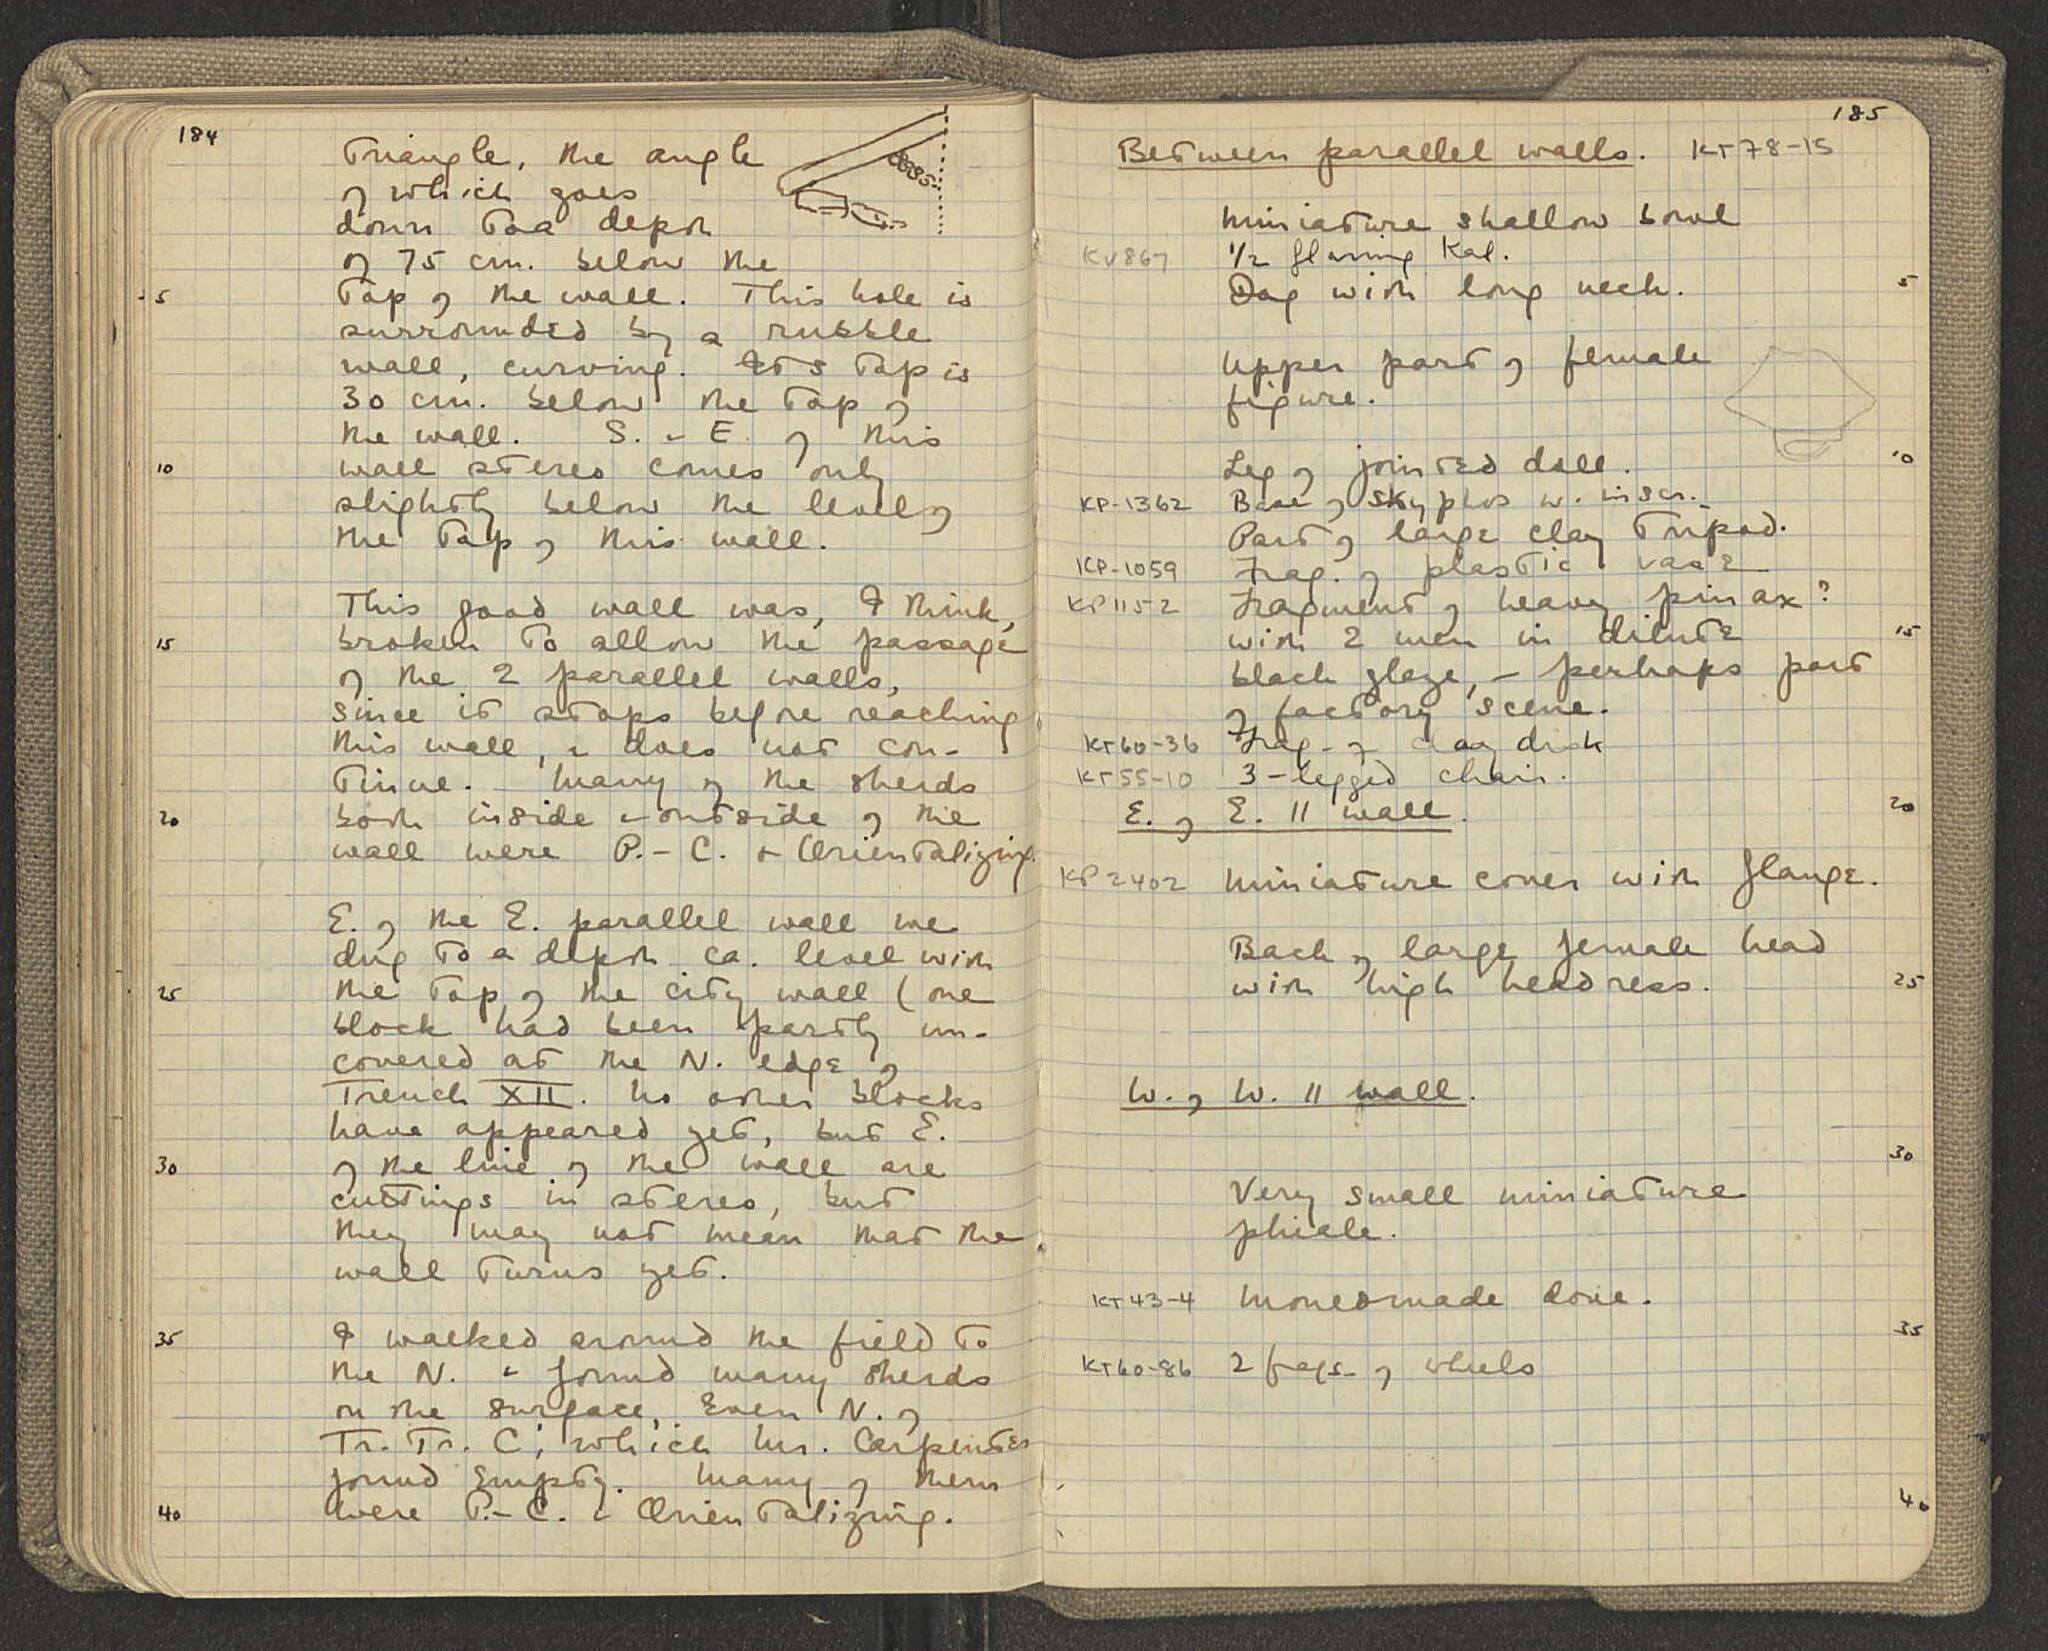 184
Triangle, the angle
of which goes
down to a depth
of 75 cm. below the
5 top of the wall. This hole is
surrounded by a rubble
wall, curving. Its top is
30 cm. below the top of
the wall. S. & E. of this
10 wall stereo comes only
slightly below the level of
the top of this wall.
This good wall was, I think,
15 broken to allow the passage
of the 2 parallel walls,
since it stops before reaching
this wall, & does not con-
tinue. Many of the sherds
20 both inside & outside of the
wall were P.-C. & Orientalizing.
E. of the E. parallel wall we
dug to a depth ca. level with
25 the top of the city wall (one
block had been partly un-
covered at the N. edge of
Trench XII. No other blocks
have appeared yet, but E.
30 of the line of the wall are
cuttings in stereo, but
they may not mean that the
wall turns yet.
35 I walked around the field to
the N. & found many sherds
on the surface, even N. of
Tr. Tr. C, which Mr. Carpenter
found empty. Many of them
40 were P.-C. & Orientalizing.
185
Between parallel walls. KT78-15
Miniature shallow bowl
KV867 1/2 flaring Kal.
Dog with long neck. 5
Upper part of female
figure.
Leg of jointed doll. 10
KP-1362 Base of skyphos w. inscr.
Part of large clay tripod.
KP-1059 Frag. of plastic vase
KP1152 Fragment of heavy pinax?
with 2 men in dilute 15
black glaze, - perhaps part
of factory scene.
KT60-36 Frag. of clay disk
KT55-10 3-legged chair.
E. of E. || wall. 20
KP2402 Miniature cover with flange.
Back of large female head
with high headress. 25
W. of W. || wall.
30
Very small miniature
phiale.
KT43-4 Moneomade dove.
35
KT60-86 2 frags. of wheels
40